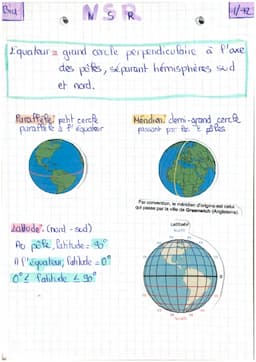 N S R
Équateur = grand cercle perpendiculaire à l'axe
des pôles, séparant hémisphères sud
et nord.
Parallèle: petit cercle
parallèle à l'équateur
Méridien: demi-grand cercle
passant par les 2 pôles
Par convention, le méridien d'origine est celui
qui passe par la ville de Greenwich (Angleterre)
Latitude: (nord - sud)
Au pôle, latitude = 90°
A l'équateur, latitude = 0°
0° ≤ latitude ≤ 90°
Latitude